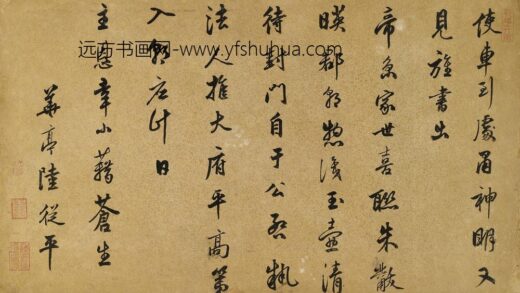 使車到處留神明又
見旌書出
帝京家世喜聯朱黻
暎郡惣玉壺清
待封門自于公啓執
法人推大府平高第
入朝應計日
主恩寧小藉蒼生
華亭陸從平
远方书画网-www.yfshuhua.com